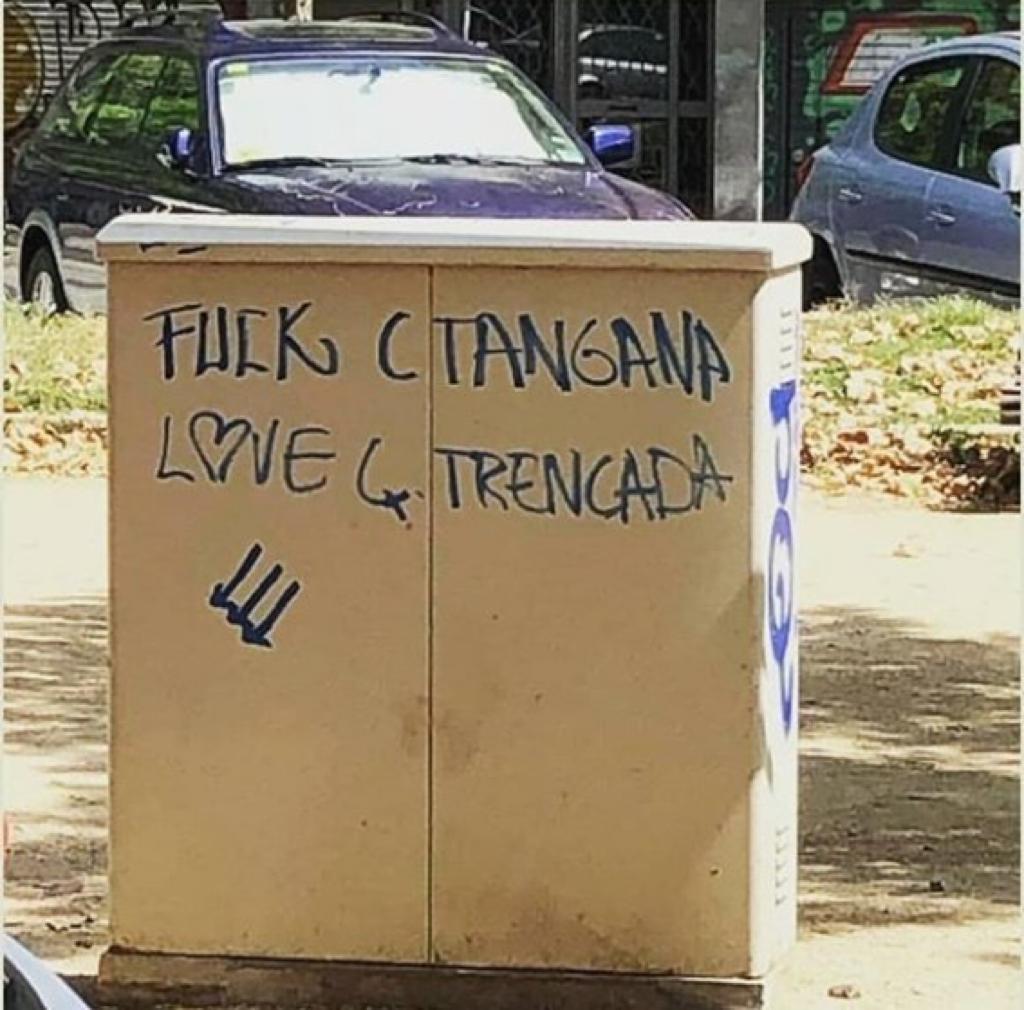 FUCK C TANGANA
L♡VE Ç. TRENCADA